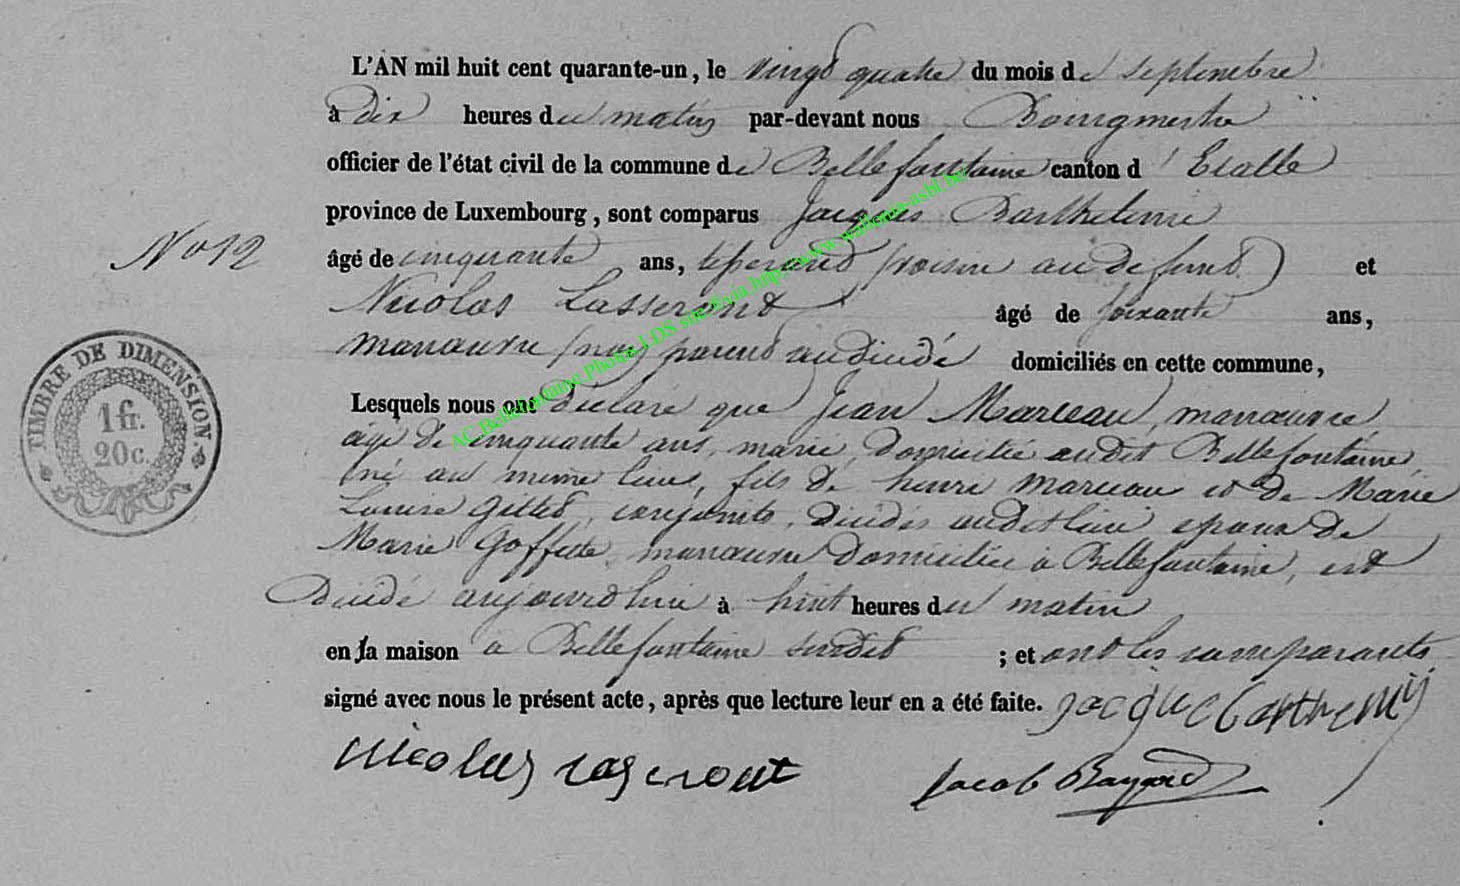 L'AN mil huit cent quarante-un, le vingt quatre du mois de septembre
à Dix heures du matin par-devant nous Bourgmestre
officier de l'état civil de la commune de Bellefontaine canton d'Etalle
province de Luxembourg, sont comparus Jacques Barthelemi
No 12
âgé de cinquante ans, (voisin au defunt) et
Nicolas Lasseront âgé de soixante ans,
manœuvre (non parent au dicédé domiciliés en cette commune,
Lesquels nous ont Déclaré que Jean Marceau manœuvre
agé de cinquante ans, marié, domicilié audit Bellefontaine,
né au même lieu, fils de henri marceau et de Marie
Louise Gillet, conjoints, dicédés audit lieu epoux de
Marie Goffette, manœuvre domiciliée à Bellefontaine, est
Dicédé aujourdhui à huit heures du matin
en sa maison a Bellefontaine susdit ; et ont les comparants
signé avec nous le présent acte, après que lecture leur en a été faite. Jacque Barthemy
nicolas lasseront Jacob Bayard
TIMBRE DE DIMENSION.
1 fr.
20 c.
AC Bellefontaine Photos LDS sur via http://www.wallonia-asbl.be/